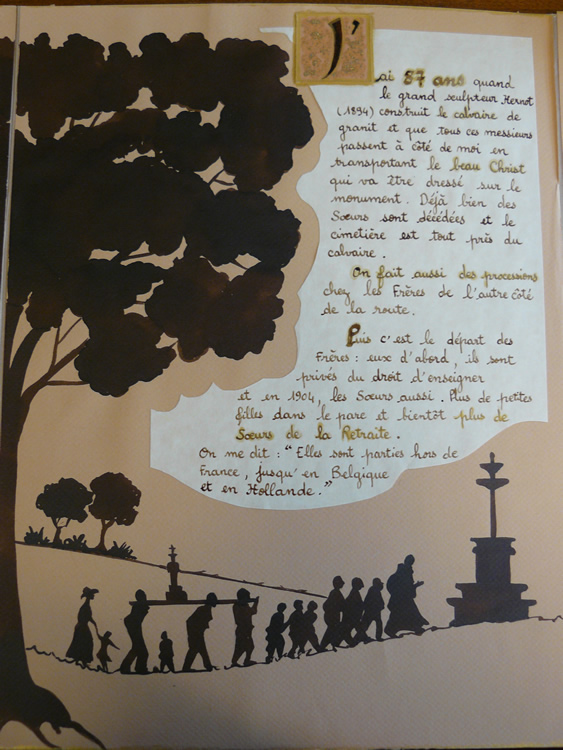 J'ai 87 ans quand
le grand sculpteur Hernot
(1894) construit le calvaire de
granit et que tous ces messieurs
passent à côté de moi en
transportant le beau Christ
qui va être dressé sur le
monument. Déjà bien des
Sœurs sont décédées et le
cimetière est tout près du
calvaire.
On fait aussi des processions
chez les Frères de l'autre côté
de la route.
Puis c'est le départ des
Frères : eux d'abord, ils sont
privés du droit d'enseigner
et en 1904, les Sœurs aussi. Plus de petites
filles dans le parc et bientôt plus de
Sœurs de la Retraite.
On me dit : "Elles sont parties hors de
France, jusqu'en Belgique
et en Hollande."